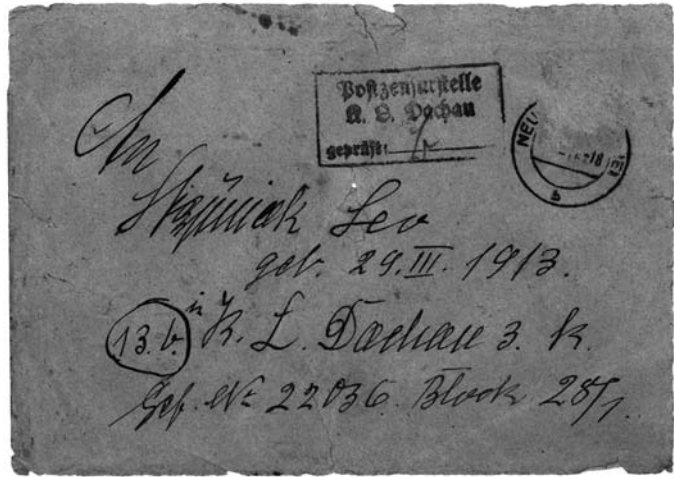 Postzensurstelle
K. L. Dachau
geprüft:
NEU
b
An
Leo
geb. 29.III. 1913.
13.b. in K. L. Dachau 3. K.
Gef. № 22036. Block 28/1.